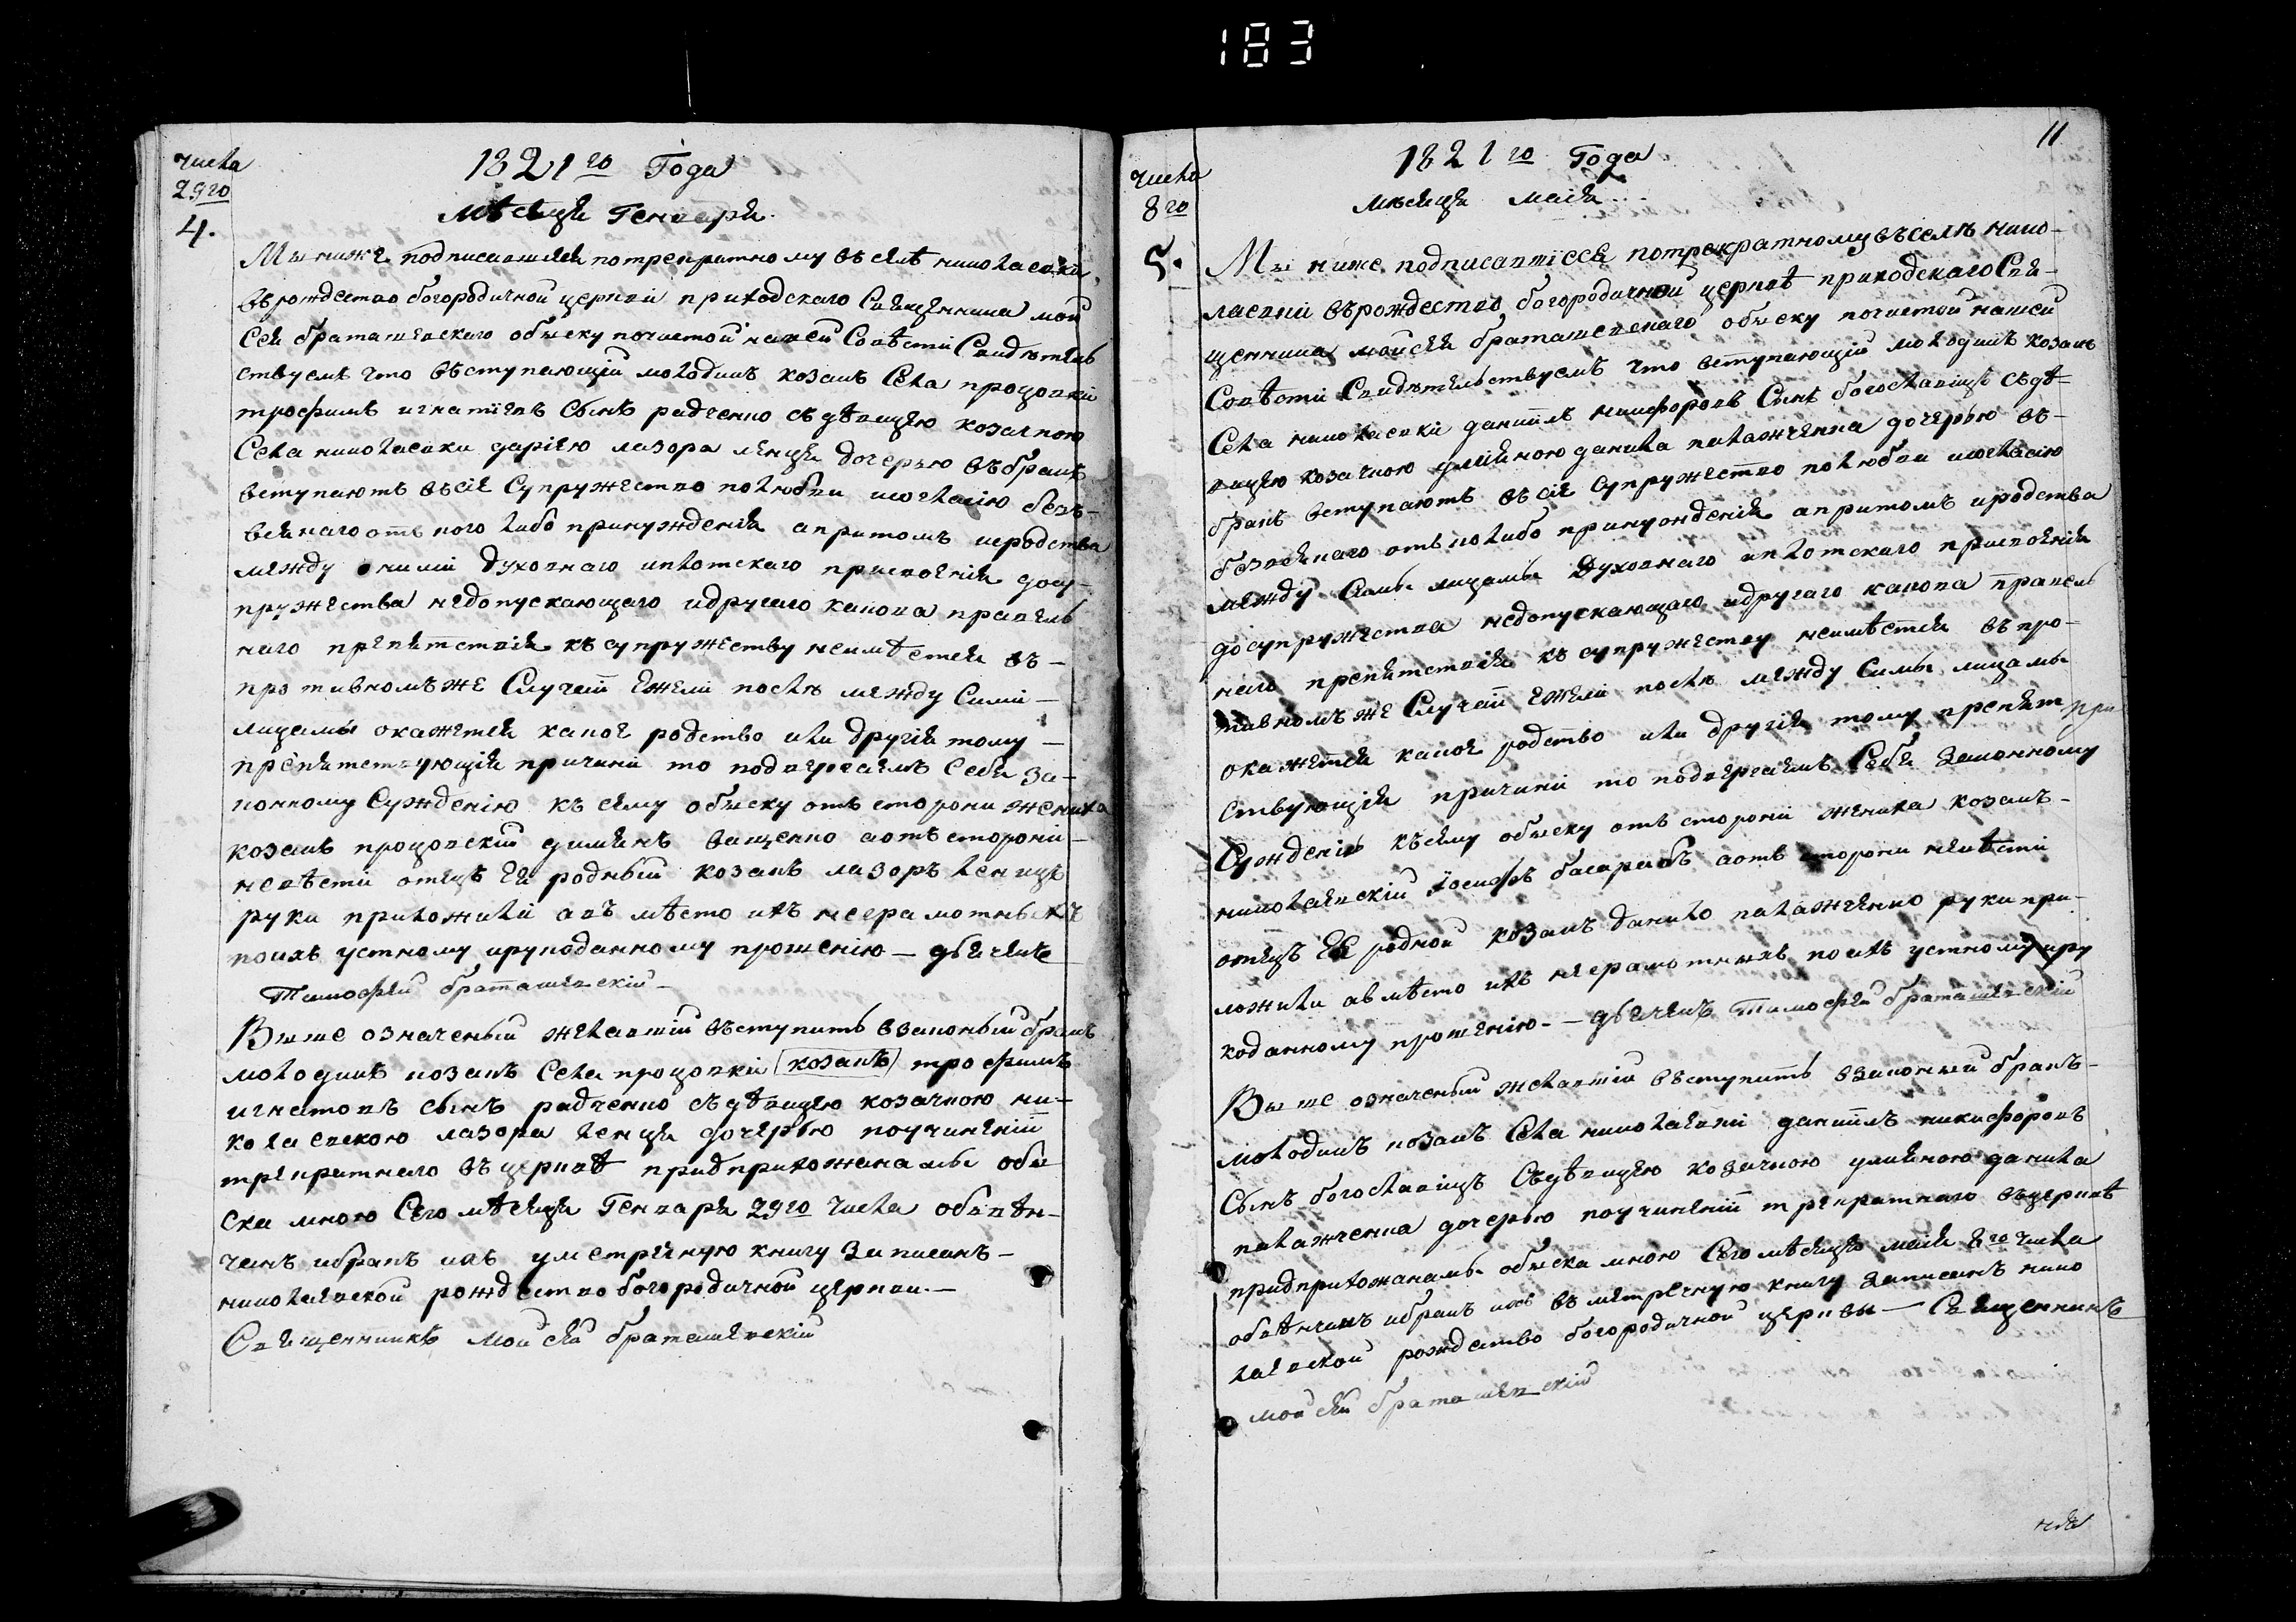 183
числа
29го
4.
1821го Года
мѣсяця Генваря
Мы ниже подписавшіяся потрекратному въ селѣ николаевки
въ рождество богородичной церкви приходскаго Священника мой
сея браташевскаго обыску почистой нашей Совѣсти Свидѣтель
ствуемъ что въступающій молодикъ козакъ Села процовки
трофимъ игнатіевъ Сынъ радченко съ дѣвицею козачкою
Села николаевки даріею лазора ленця дочерью въ бракъ
вступаютъ въ сіе Супружество полюбви исогласію безъ
всякаго отъ кого либо принужденія апритомъ иеродства
между ними Духовнаго иплотскаго присвоенія досу-
пружества недопускающаго идругаго какова правель
наго препятствія къ супружеству неимѣется въ-
противномъ же Случаи ежели послѣ между Сими
лицамы окажется какое родство или Другія тому
препятствующія причини то подвергаемъ Себя за-
конному Сужденію къ сему обыску отъ сторони жениха
козакъ процовскій ващенко аотъ сторони
невѣсти отецъ Ея родный козакъ лазоръ ленець
руки приложили авъ мѣсто ихъ неграмотныхъ
поихъ устному ирукоданному прошенію — дьячекъ
Тимофей браташевскій
Выше означеный желавшій въступить взаконый бракъ
молодикъ козакъ Села процовки (козакъ) трофимъ
игнатовъ сынъ радченко съ дѣвицею козачкою ни-
колаевскою лазора ленця дочерью поучиненіи
трекратнаго въ церквѣ придприхожанамы обы
ска мною Сего мѣсяця Генваря 29го числа обвѣн-
чанъ ибракъ ихъ уметречную книгу записанъ-
николаевской рождество богородичной церкви.—
Священникъ Мойсей браташевскій
11
числа
8го
5.
1821го Года
мѣсяця маія
Мы ниже подписавшіеся потрекратному въ селѣ нико-
лаевки въ рождество богородичной церквѣ приходскаго Свя-
щенника мойсея браташевскаго обыску почистой нашей
Совѣсти Свидѣтельствуемъ что вступающій молодикъ козакъ
Села николаевки даніилъ никифоровъ Сынъ богославецъ съ дѣ-
вицею козачкою уліяною данила паламженка дочерью въ-
бракъ вступаютъ въ сіе супружество полюбви исогласію
безвсякаго отъ колибо принужденія апритомъ иродства
между Симы лицамы Духовнаго иплотскаго присвоенія
досупружества недопускающаго идругаго какова правель
наго препятствія къ супружеству неимѣется въ про-
тивномъ же Случаи ежели послѣ между Симы лицамы
окажется какое родство или другія тому препят при
ствующія причини то подвергаемъ Себя Законному
Сужденію къ сему обыску отъ стороні жениха козакъ-
николаевскій Іосифъ басарабъ аотъ сторони невѣсти
отецъ Ея родной козакъ данило паламженко руки при-
ложили авмѣсто ихъ неграмотныхъ поихъ устному иру
коданному прошенію.— дьячекъ Тимофей браташевскій
Выше означеный желавшій въступить взаконый бракъ-
молодикъ козакъ Села николаевки даніилъ никифоровъ
Сынъ богославецъ Съдѣвицею козачкою уліяною данила
паламженка дочерью поучиненіи трекратнаго въцерквѣ
придприхожанамы обыска мною Сего мѣсяця маія 8го числа
обвѣнчанъ ибракъ ихъ въ метречную книгу Записанъ нико
лаевской рождество богородичной церквы — Священникъ
мойсей браташевскій